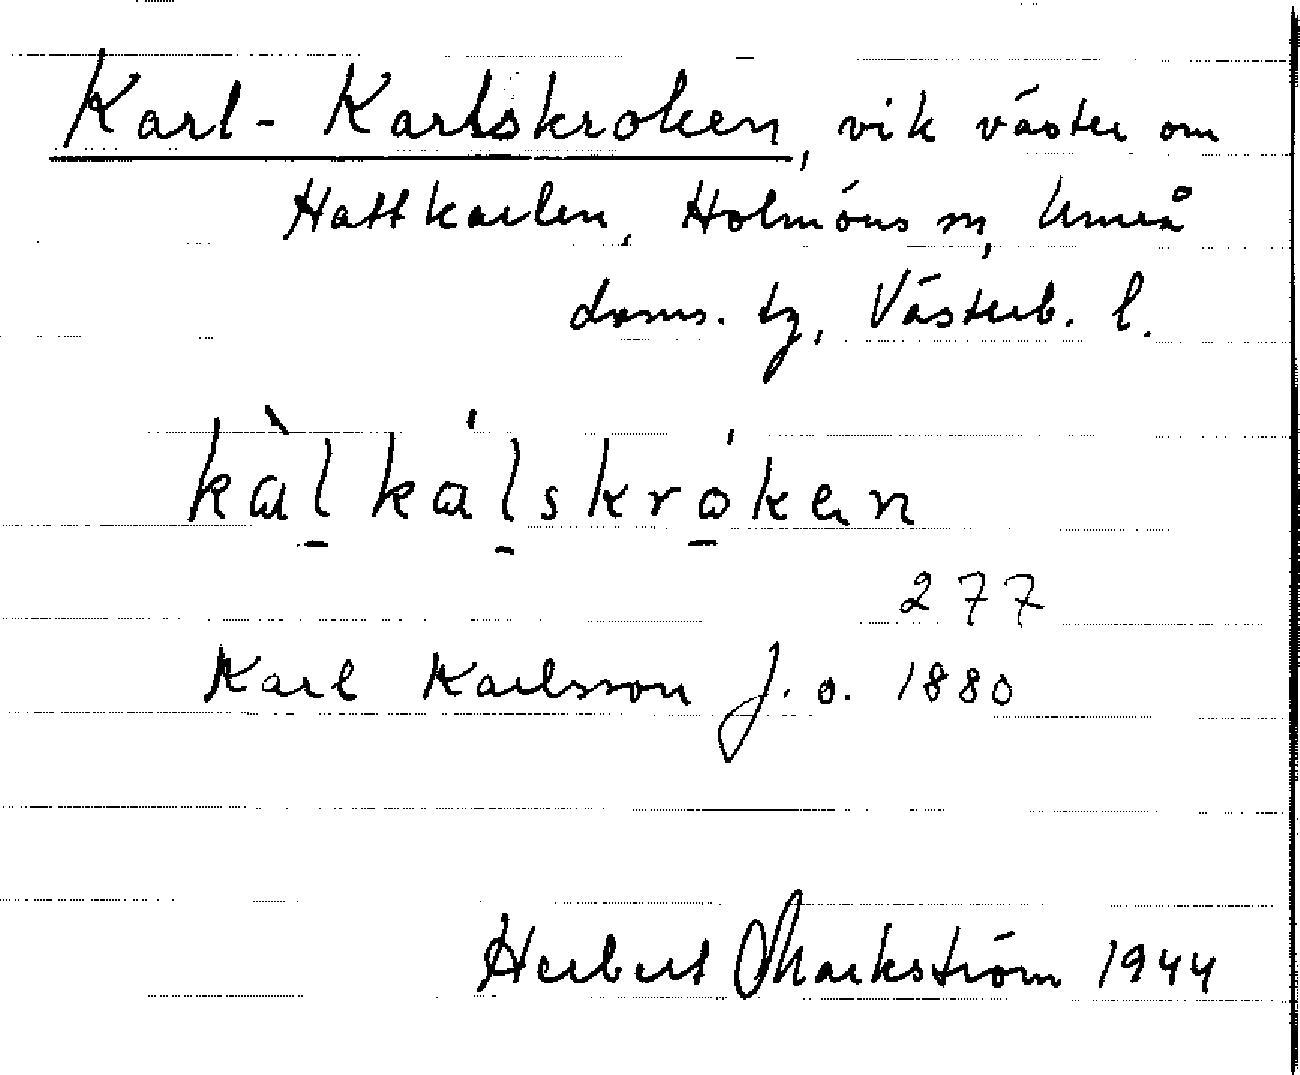 Karl-Karlskroken, vik väster om
Hattkarlen, Holmöns sn, Umeå
doms. tg, Västerb. l.
kàlkálskróken
277
Karl Karlsson f. o. 1880
Herbert Markström 1944